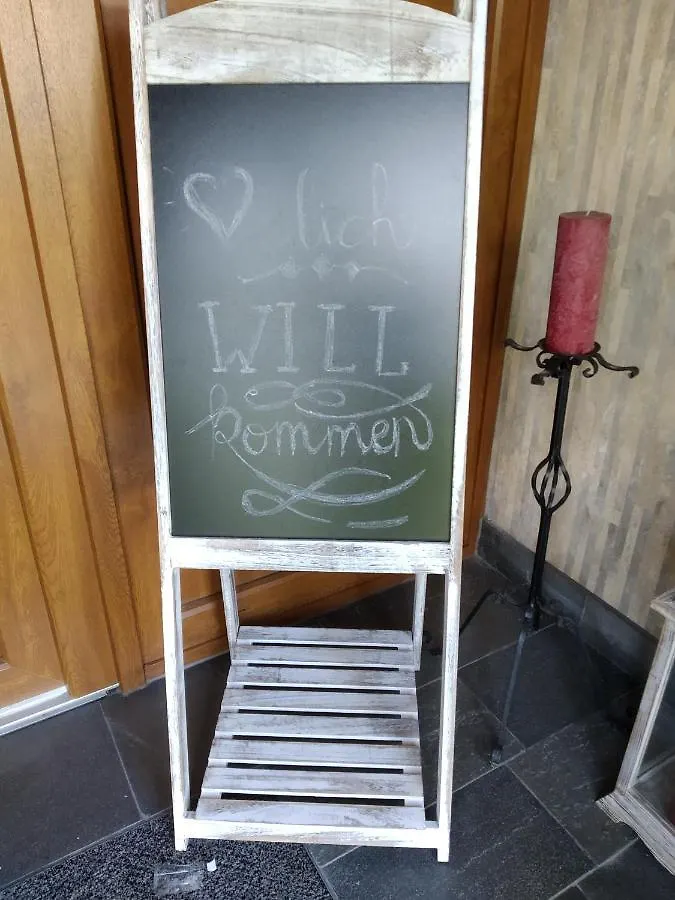 ♡lich
WILL
kommen